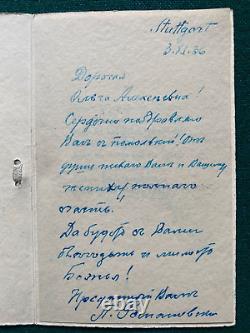 Stuttgart
3.XI.56
Дорогая
Ольга Алексеевна!
Сердечно поздравляю
Вас с помолвкой! От
души желаю Вам и Вашему
жениху полного
счастья.
Да будет с Вами
благодать и милость
Божья!
Преданный Вам